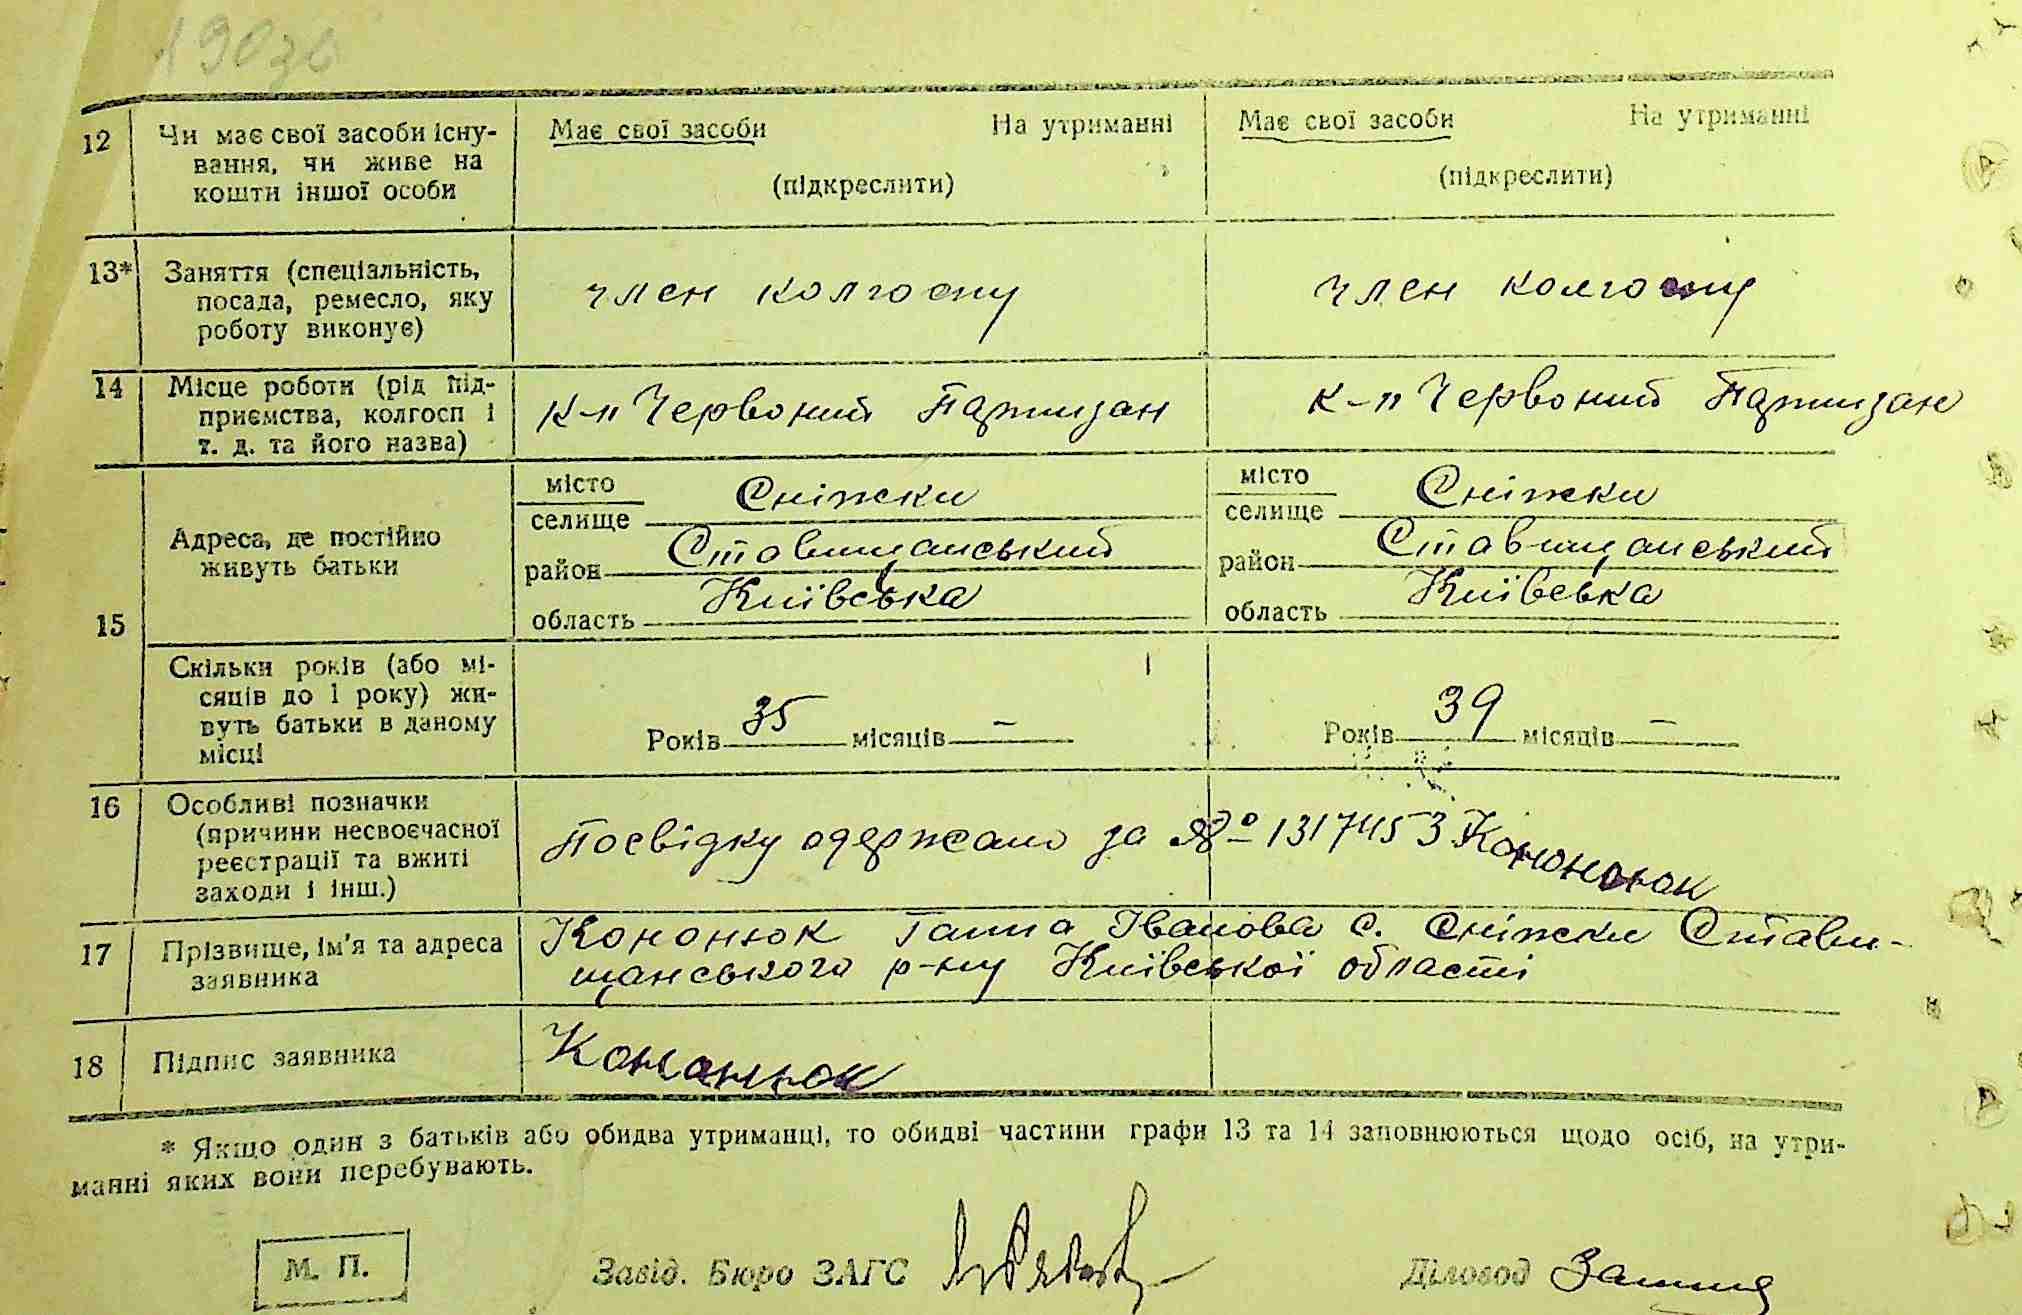 12
Чи має свої засоби існу-
вання, чи живе на
кошти іншої особи
Має свої засоби На утриманні
(підкреслити)
Має свої засоби На утриманні
(підкреслити)
13*
Заняття (спеціальність,
посада, ремесло, яку
роботу виконує)
член колгоспу
член колгоспу
14
Місце роботи (рід під-
приємства, колгосп і
т. д. та його назва)
к-п Червоний Партизан
к-п Червоний Партизан
15
Адреса, де постійно
живуть батьки
місто
селище Сніжки
район Ставищанський
область Київська
місто
селище Сніжки
район Ставищанський
область Київська
Скільки років (або мі-
сяців до 1 року) жи-
вуть батьки в даному
місці
Років 35 місяців –
Років 39 місяців –
16
Особливі позначки
(причини несвоєчасної
реєстрації та вжиті
заходи і інш.)
Посвідку одержано за № 1317453 Кононюк
17
Прізвище, ім'я та адреса
заявника
Кононюк Ганна Іванова с. Сніжки Стави-
щанського р-ну Київської області
18
Підпис заявника
Кононюк
* Якщо один з батьків або обидва утриманці, то обидві частини графи 13 та 14 заповнюються щодо осіб, на утри-
манні яких вони перебувають.
М. П.
Завід. Бюро ЗАГС
Діловод